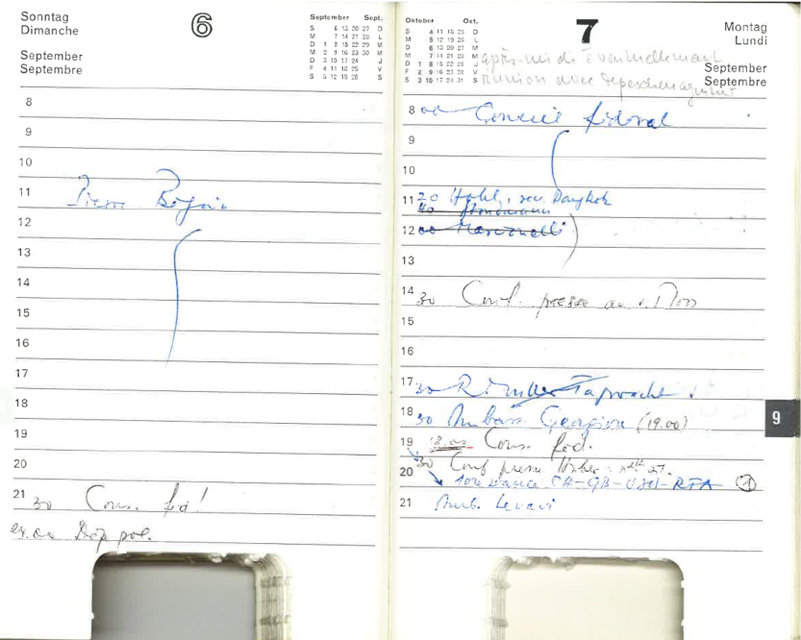 Sonntag
Dimanche
6
September
Septembre
September Sept.
S 6 13 20 27 D
M 7 14 21 28 L
D 1 8 15 22 29 M
M 2 9 16 23 30 M
D 3 10 17 24 J
F 4 11 18 25 V
S 5 12 19 26 S
8
9
10
11 Pierre
12
13
14
15
16
17
18
19
20
21 30 Cons. féd!
24.00 Dép pol.
Oktober Oct.
S 4 11 18 25 D
M 5 12 19 26 L
D 6 13 20 27 M
M 7 14 21 28 M
D 1 8 15 22 29 J
F 2 9 16 23 30 V
S 3 10 17 24 31 S
7
Montag
Lundi
September
Septembre
après-midi éventuellement
réunion avec
8 00 Conseil fédéral
9
10
11 20 Hohl, Bangkok
40
12 00 Marcionelli
13
14 30 Conf. presse
15
16
17 30
18 30 Ambass. (19.00)
19 18.00 Cons. féd.
30 Conf presse
20 séance CH-GB-USA-RFA 1
21 Amb. Levavi
9